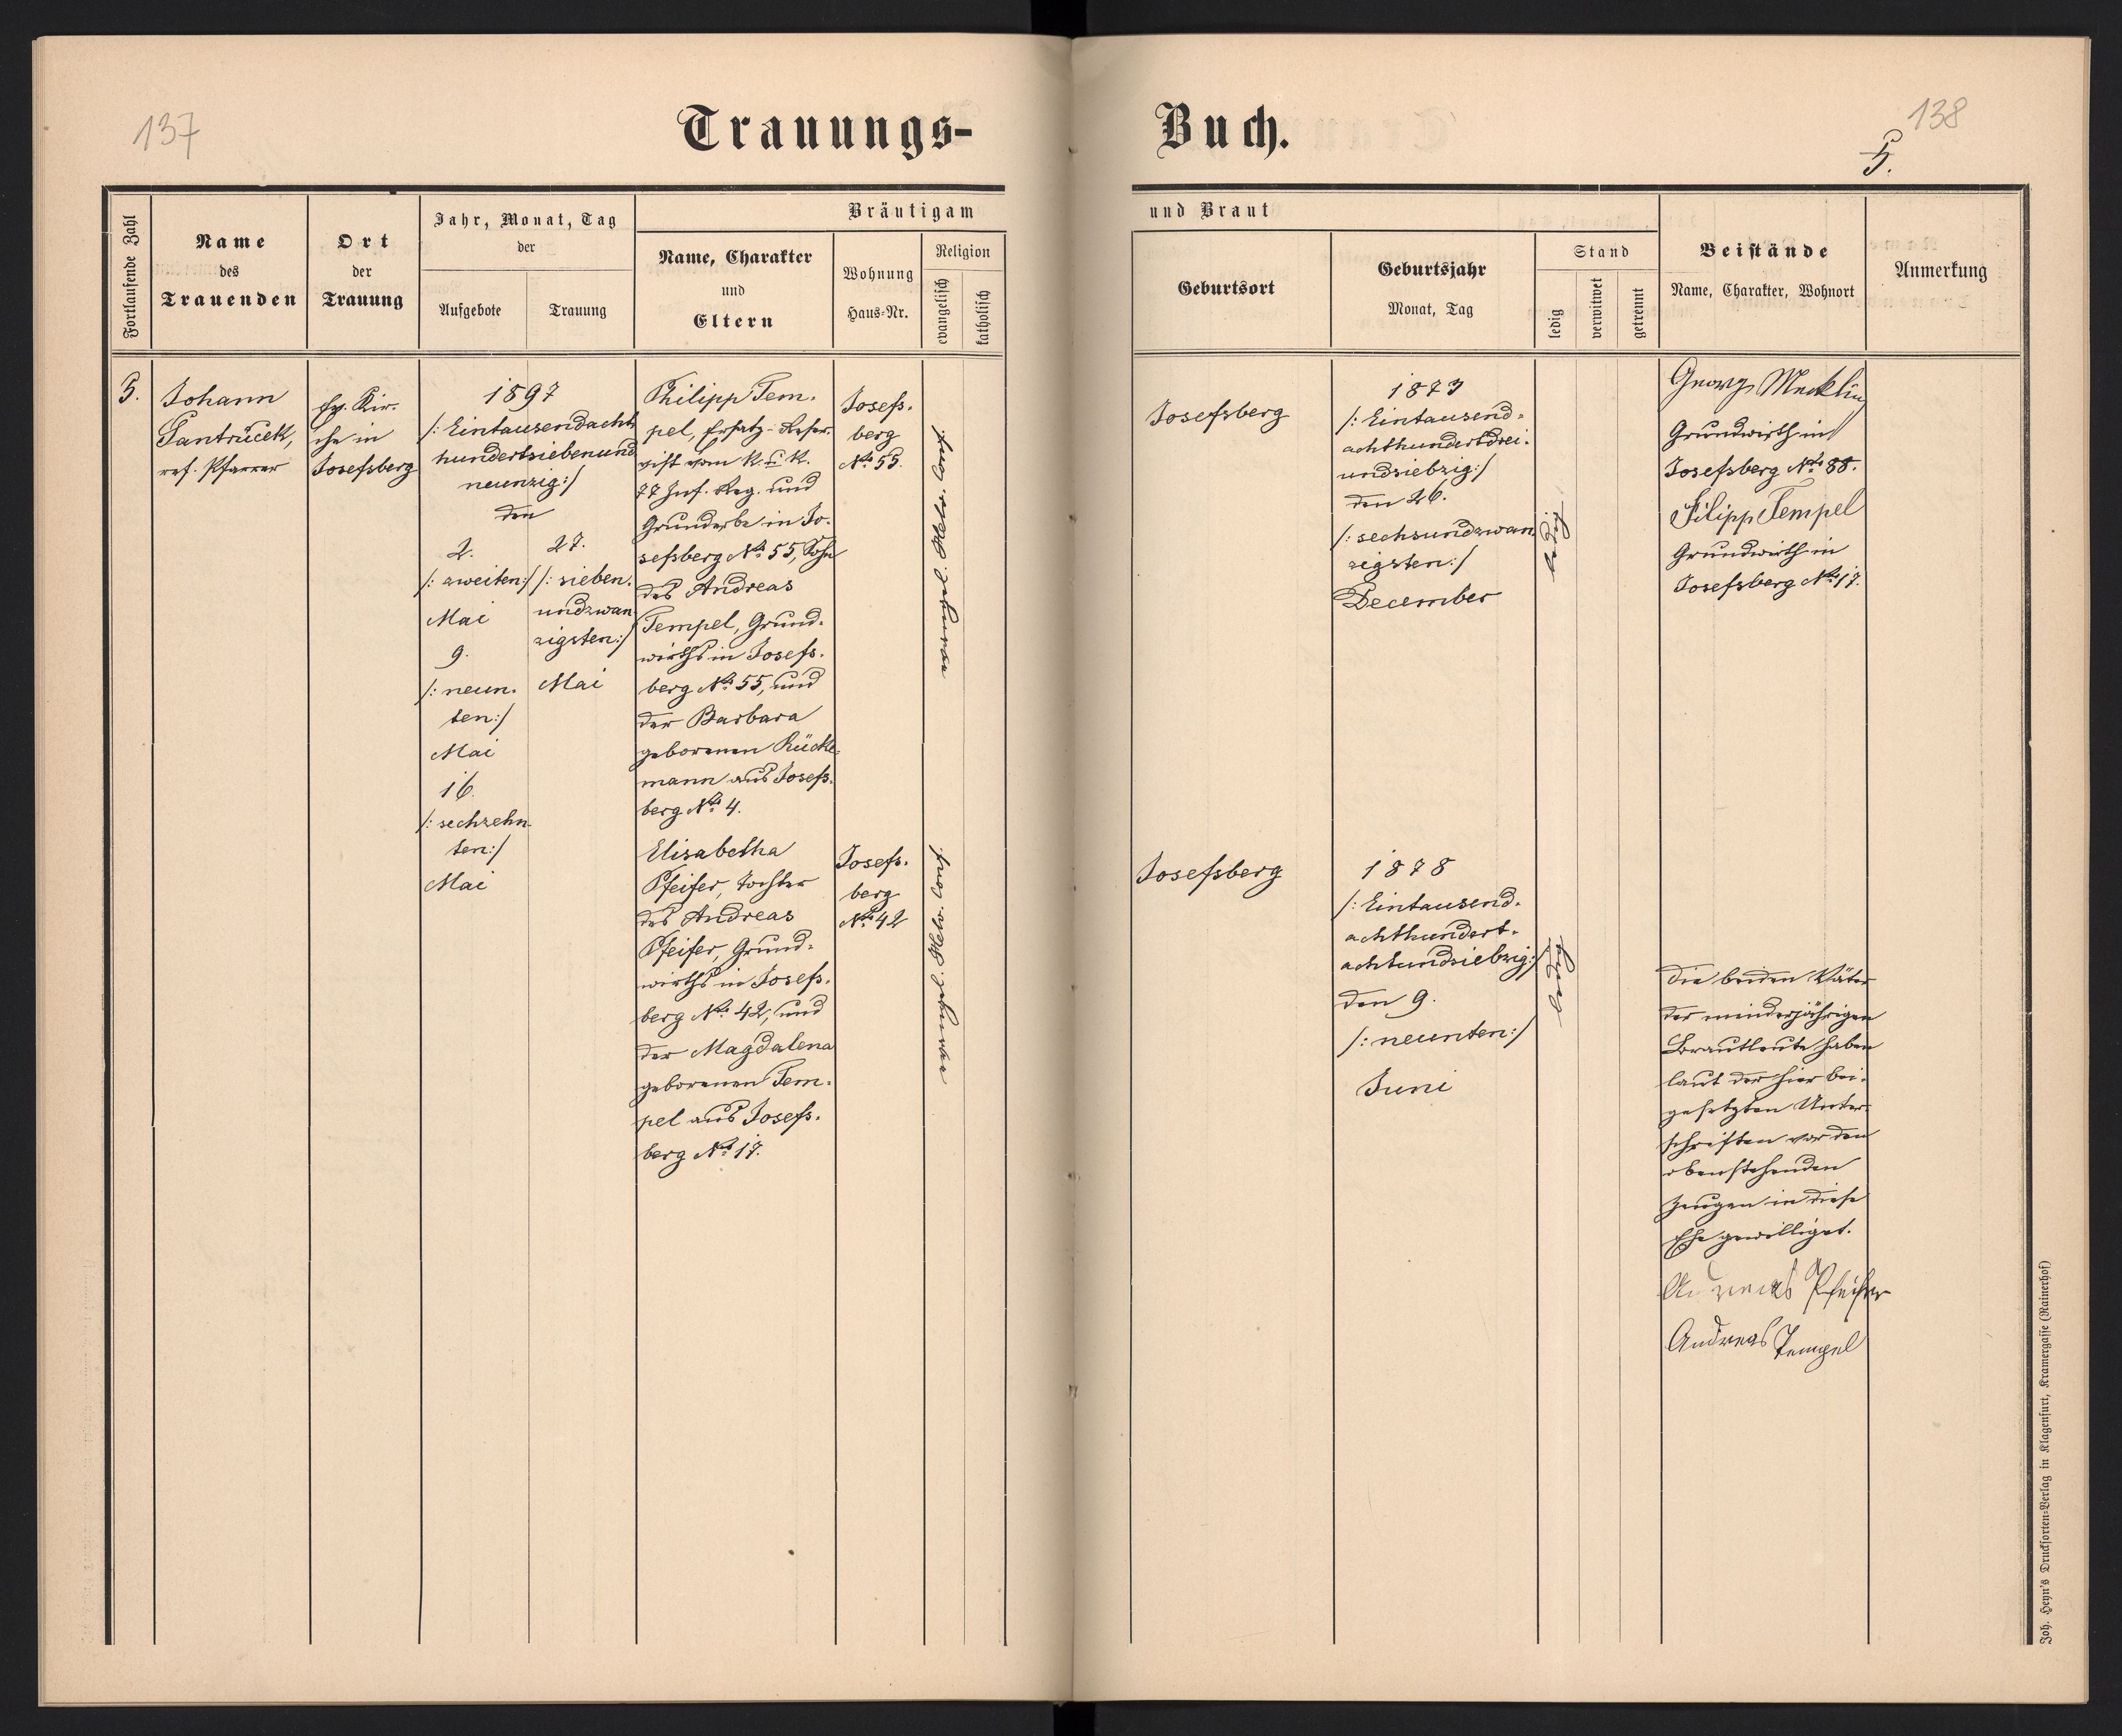 137
Trauungs-
Fortlaufende Zahl
Name
des
Trauenden
Ort
der
Trauung
Jahr, Monat, Tag
der
Aufgebote
Trauung
Bräutigam
Name, Charakter
und
Eltern
Wohnung
Haus-Nr.
Religion
evangelisch
katholisch
5.
Johann
Santrůček,
ref. Pfarrer
Ev. Kir-
che in
Josefsberg
1897
/: Eintausendacht
hundertsiebenund
neunzig :/
den
2.
/: zweiten :/
Mai
9.
/: neun-
ten :/
Mai
16.
/: sechzehn
ten :/
Mai
27.
/: sieben-
undzwan-
zigsten :/
Mai
Philipp Tem-
pel, Ersatz-Reser-
vist vom K. u. K.
77 Inf. Reg. und
Grunderbe in Jo-
sefsberg No. 55, Sohn
des Andreas
Tempel, Grund-
wirths in Josefs-
berg No. 55, und
der Barbara
geborenen Rücke-
mann aus Josefs-
berg No. 4.
Josefs-
berg
No. 55.
evangel. Helv. Conf.
Elisabetha
Pfeifer, Tochter
des Andreas
Pfeifer, Grund-
wirths in Josefs-
berg No. 42, und
der Magdalena
geborenen Tem-
pel aus Josefs-
berg No. 17.
Josefs-
berg
No. 42
evangel. Helv. Conf.
138
5.
Buch.
und Braut
Geburtsort
Geburtsjahr
Monat, Tag
Stand
ledig
verwitwet
getrennt
Beistände
Name, Charakter, Wohnort
Anmerkung
Josefsberg
1873
/: Eintausend-
achthundertdrei-
undsiebzig :/
den 26.
/: sechsundzwan-
zigsten :/
December
ledig
Georg Mecklin
Grundwirth in
Josefsberg No. 88.
Filipp Tempel
Grundwirth in
Josefsberg No. 17.
Josefsberg
1878
/: Eintausend-
achthundert-
achtundsiebzig :/
den 9.
/: neunten :/
Juni
ledig
Die beiden Väter
der minderjährigen
Brautleute haben
laut der hier bei-
gesetzten Unter-
schriften vor den
obenstehenden
Zeugen in diese
Ehe gewilliget.
Andreas Pfeifer
Andreas Tempel
Joh. Heyn's Drucksorten-Verlag in Klagenfurt, Kramergasse (Rainerhof)